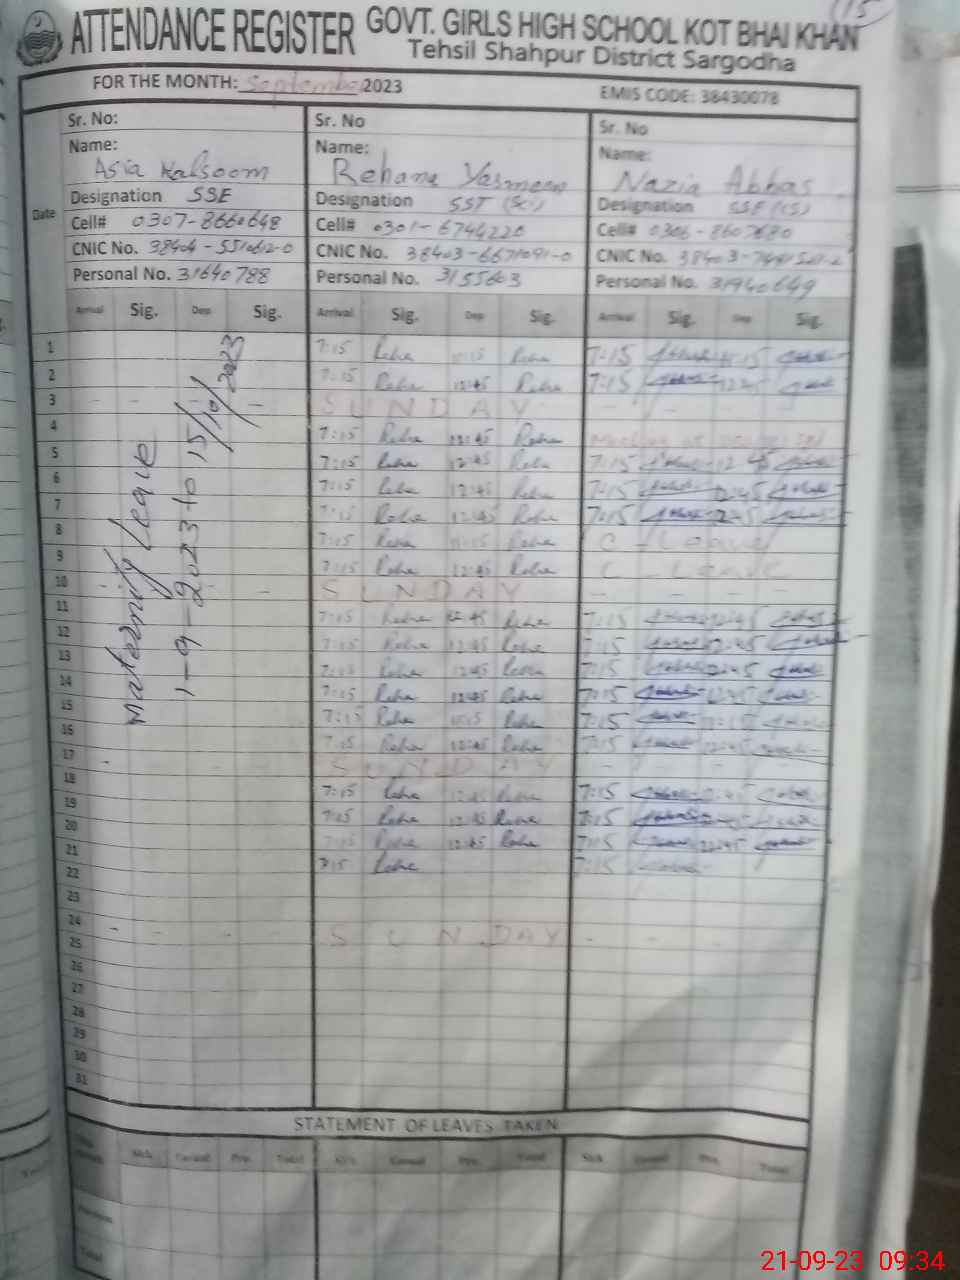 ATTENDANCE REGISTER GOVT. GIRLS HIGH SCHOOL KOT BHAI KHAN
Tehsil Shahpur District Sargodha
FOR THE MONTH: September 2023 EMIS CODE: 38430078
Sr. No: Sr. No Sr. No
Name: Name: Name:
Asia Kalsoom Rehana Yasmeen Nazia Abbas
Designation SSE Designation SST (Sci) Designation SSE (CS)
Date
Cell# 0307-8660648 Cell# 0301-6744220 Cell# 0306-8607680
CNIC No. 38404-5510612-0 CNIC No. 38403-6671091-0 CNIC No. 38403-
Personal No. 31640788 Personal No. 3155603 Personal No. 31940649
Arrival Sig. Dep Sig. Arrival Sig. Dep Sig. Arrival Sig. Dep Sig.
Maternity Leave
1-9-2023 to 15/10/2023
1 7:15 Reha 11:15 Reha 7:15 11:15
2 7:15 Reha 12:45 Reha 7:15 12:45
3 - - - SUNDAY - - - -
4 7:15 Reha 12:45 Reha
5 7:15 Reha 12:45 Reha 7:15 12:45
6 7:15 Reha 12:45 Reha 7:15 12:45
7 7:15 Reha 12:45 Reha 7:15 12:45
8 7:15 Reha 11:15 Reha C-Leave
9 7:15 Reha 12:45 Reha C-Leave
10 - SUNDAY - - - -
11 7:15 Reha 12:45 Reha 7:15 12:45
12 7:15 Reha 12:45 Reha 7:15 12:45
13 7:15 Reha 12:45 Reha 7:15 12:45
14 7:15 Reha 12:45 Reha 7:15 12:45
15 7:15 Reha 11:15 Reha 7:15 11:15
16 7:15 Reha 12:45 Reha 7:15 12:45
17 - SUNDAY - - - -
18 7:15 Reha 12:45 Reha 7:15 12:45
19 7:15 Reha 12:45 Reha 7:15 12:45
20 7:15 Reha 12:45 Reha 7:15 12:45
21 7:15 Reha 7:15
22
23
24 - - - - SUNDAY - - -
25
26
27
28
29
30
31
STATEMENT OF LEAVES TAKEN
Sick Casual Total Casual Total Sick Total
Total
21-09-23 09:34